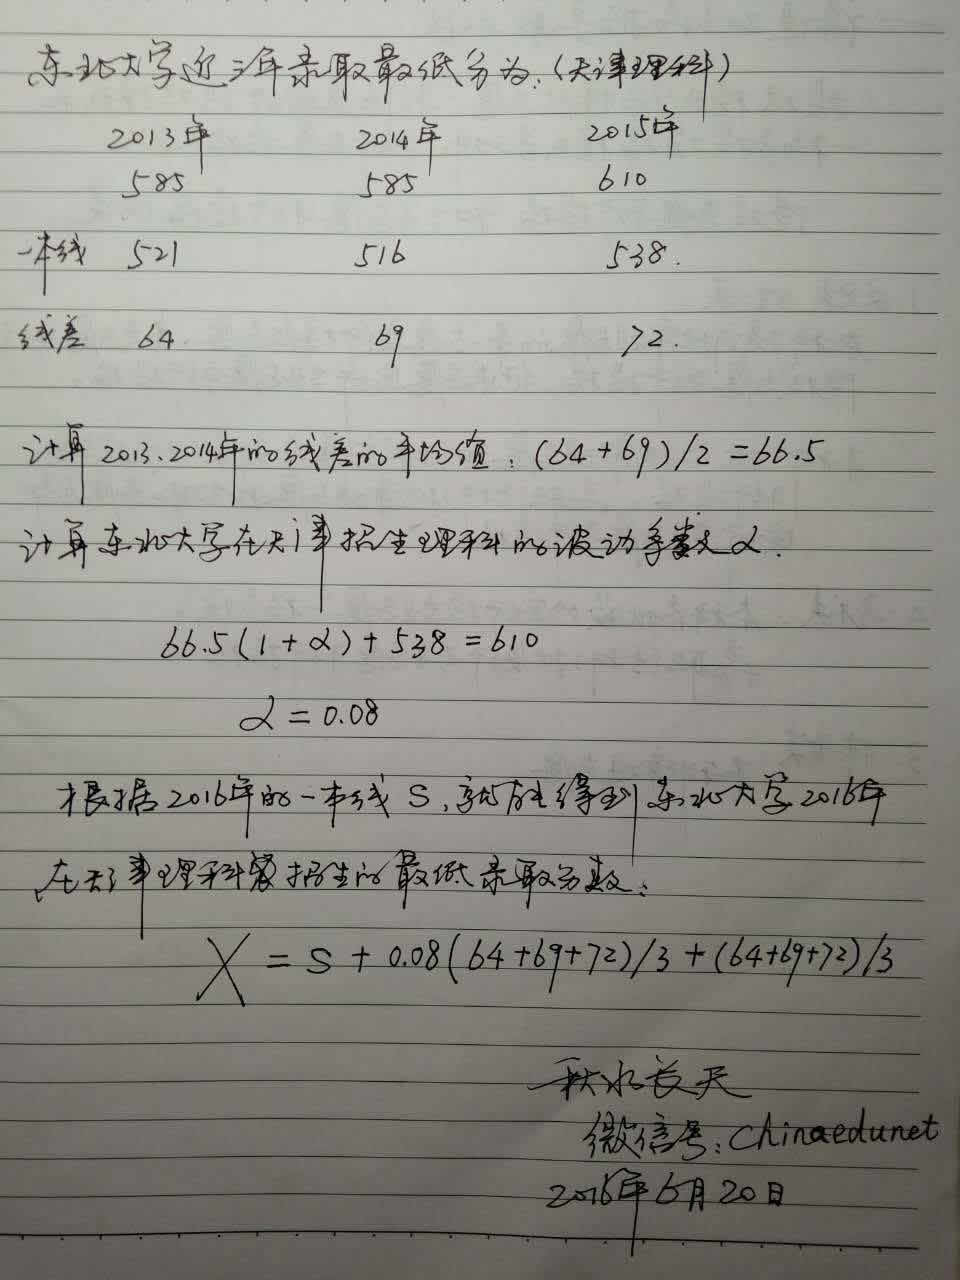 东北大学近三年录取最低分为:(天津理科)
2013年 2014年 2015年
585 585 610
一本线 521 516 538.
线差 64 69 72.
计算2013.2014年的线差的平均值:(64+69)/2=66.5
计算东北大学在天津招生理科的波动系数α.
66.5(1+α)+538=610
α=0.08
根据2016年的一本线S,就能得到东北大学2016年
在天津理科招生的最低录取分数:
X=S+0.08(64+69+72)/3+(64+69+72)/3
秋水长天
微信号:chinaedunet
2016年6月20日